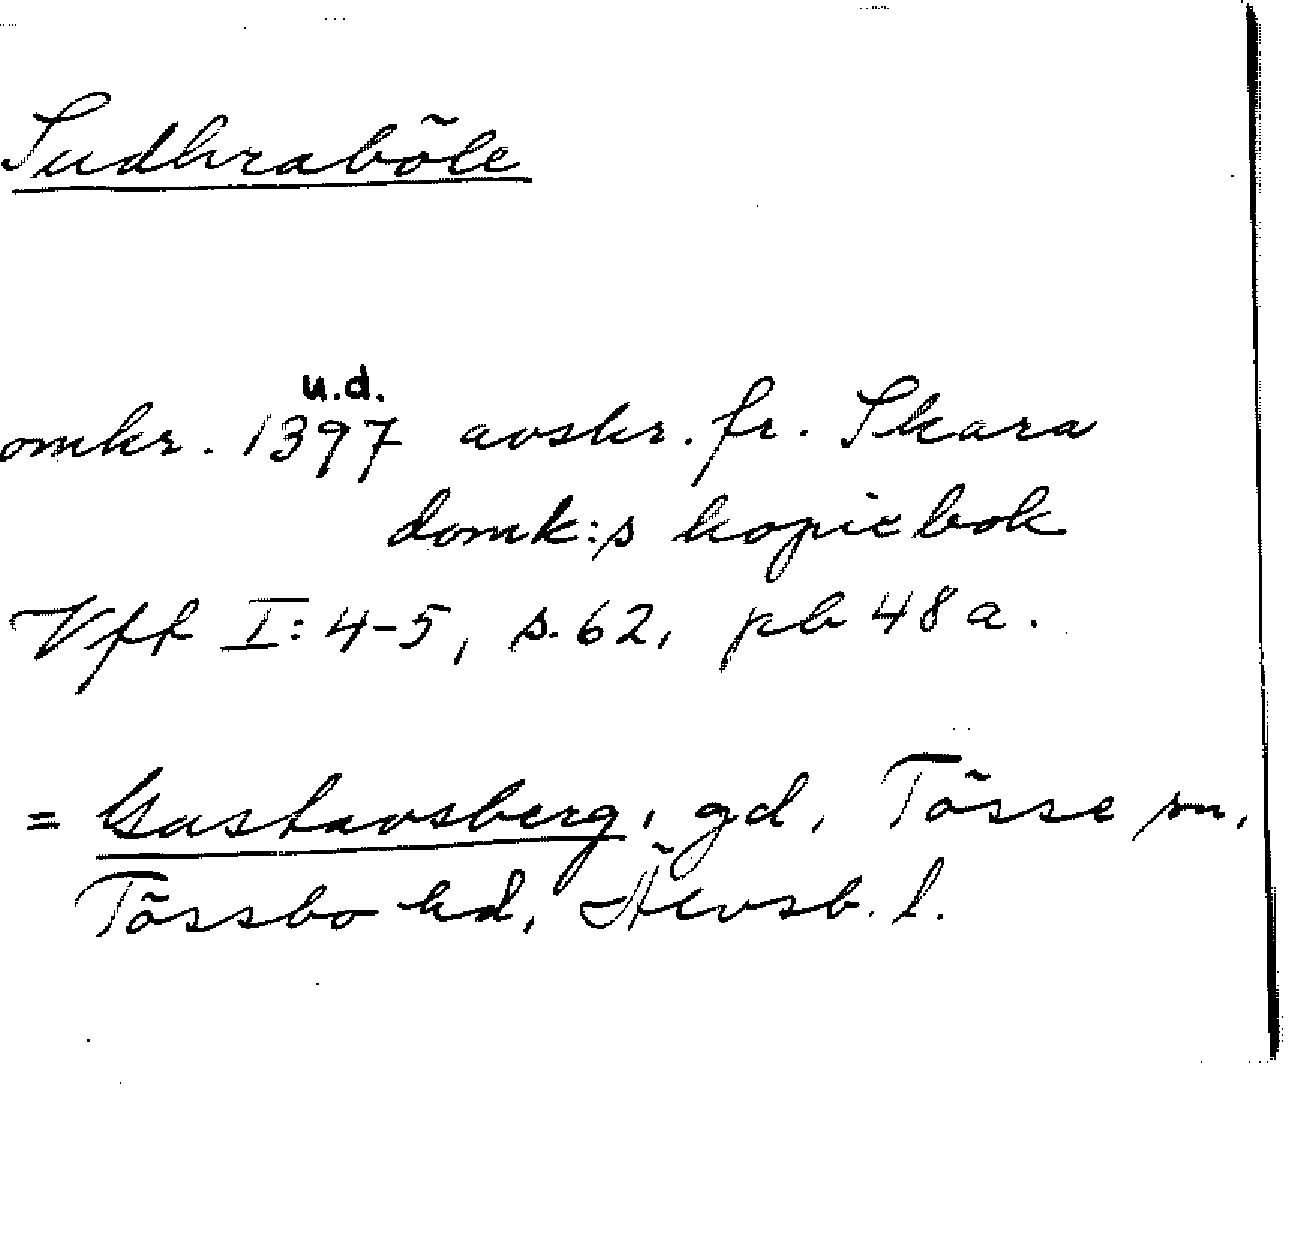 Sudhraböle
u.d.
omkr. 1397 avskr. fr. Skara
domk:s kopiebok
Vff I: 4-5, s. 62, pb 48 a.
= Gustavsberg, gd, Tösse sn,
Tössbo hd, Älvsb. l.